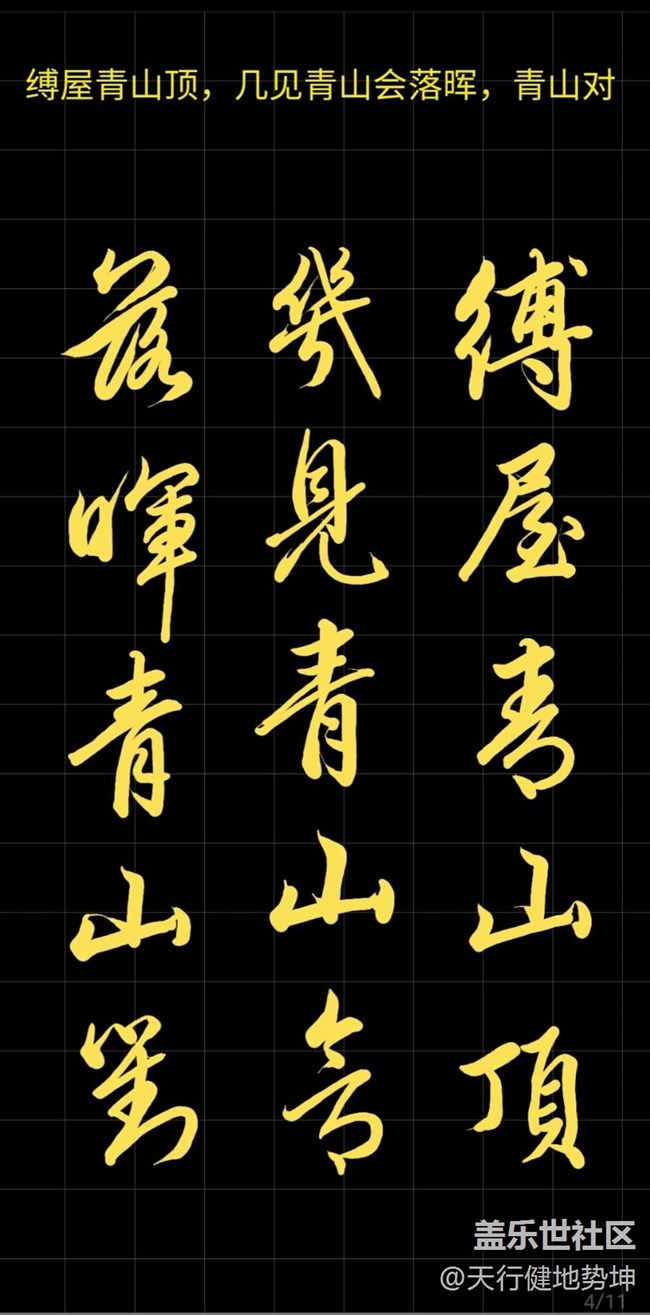 缚屋青山顶，几见青山会落晖，青山对
縛屋青山頂
幾見青山會
落暉青山對
盖乐世社区
@天行健地势坤
4/11